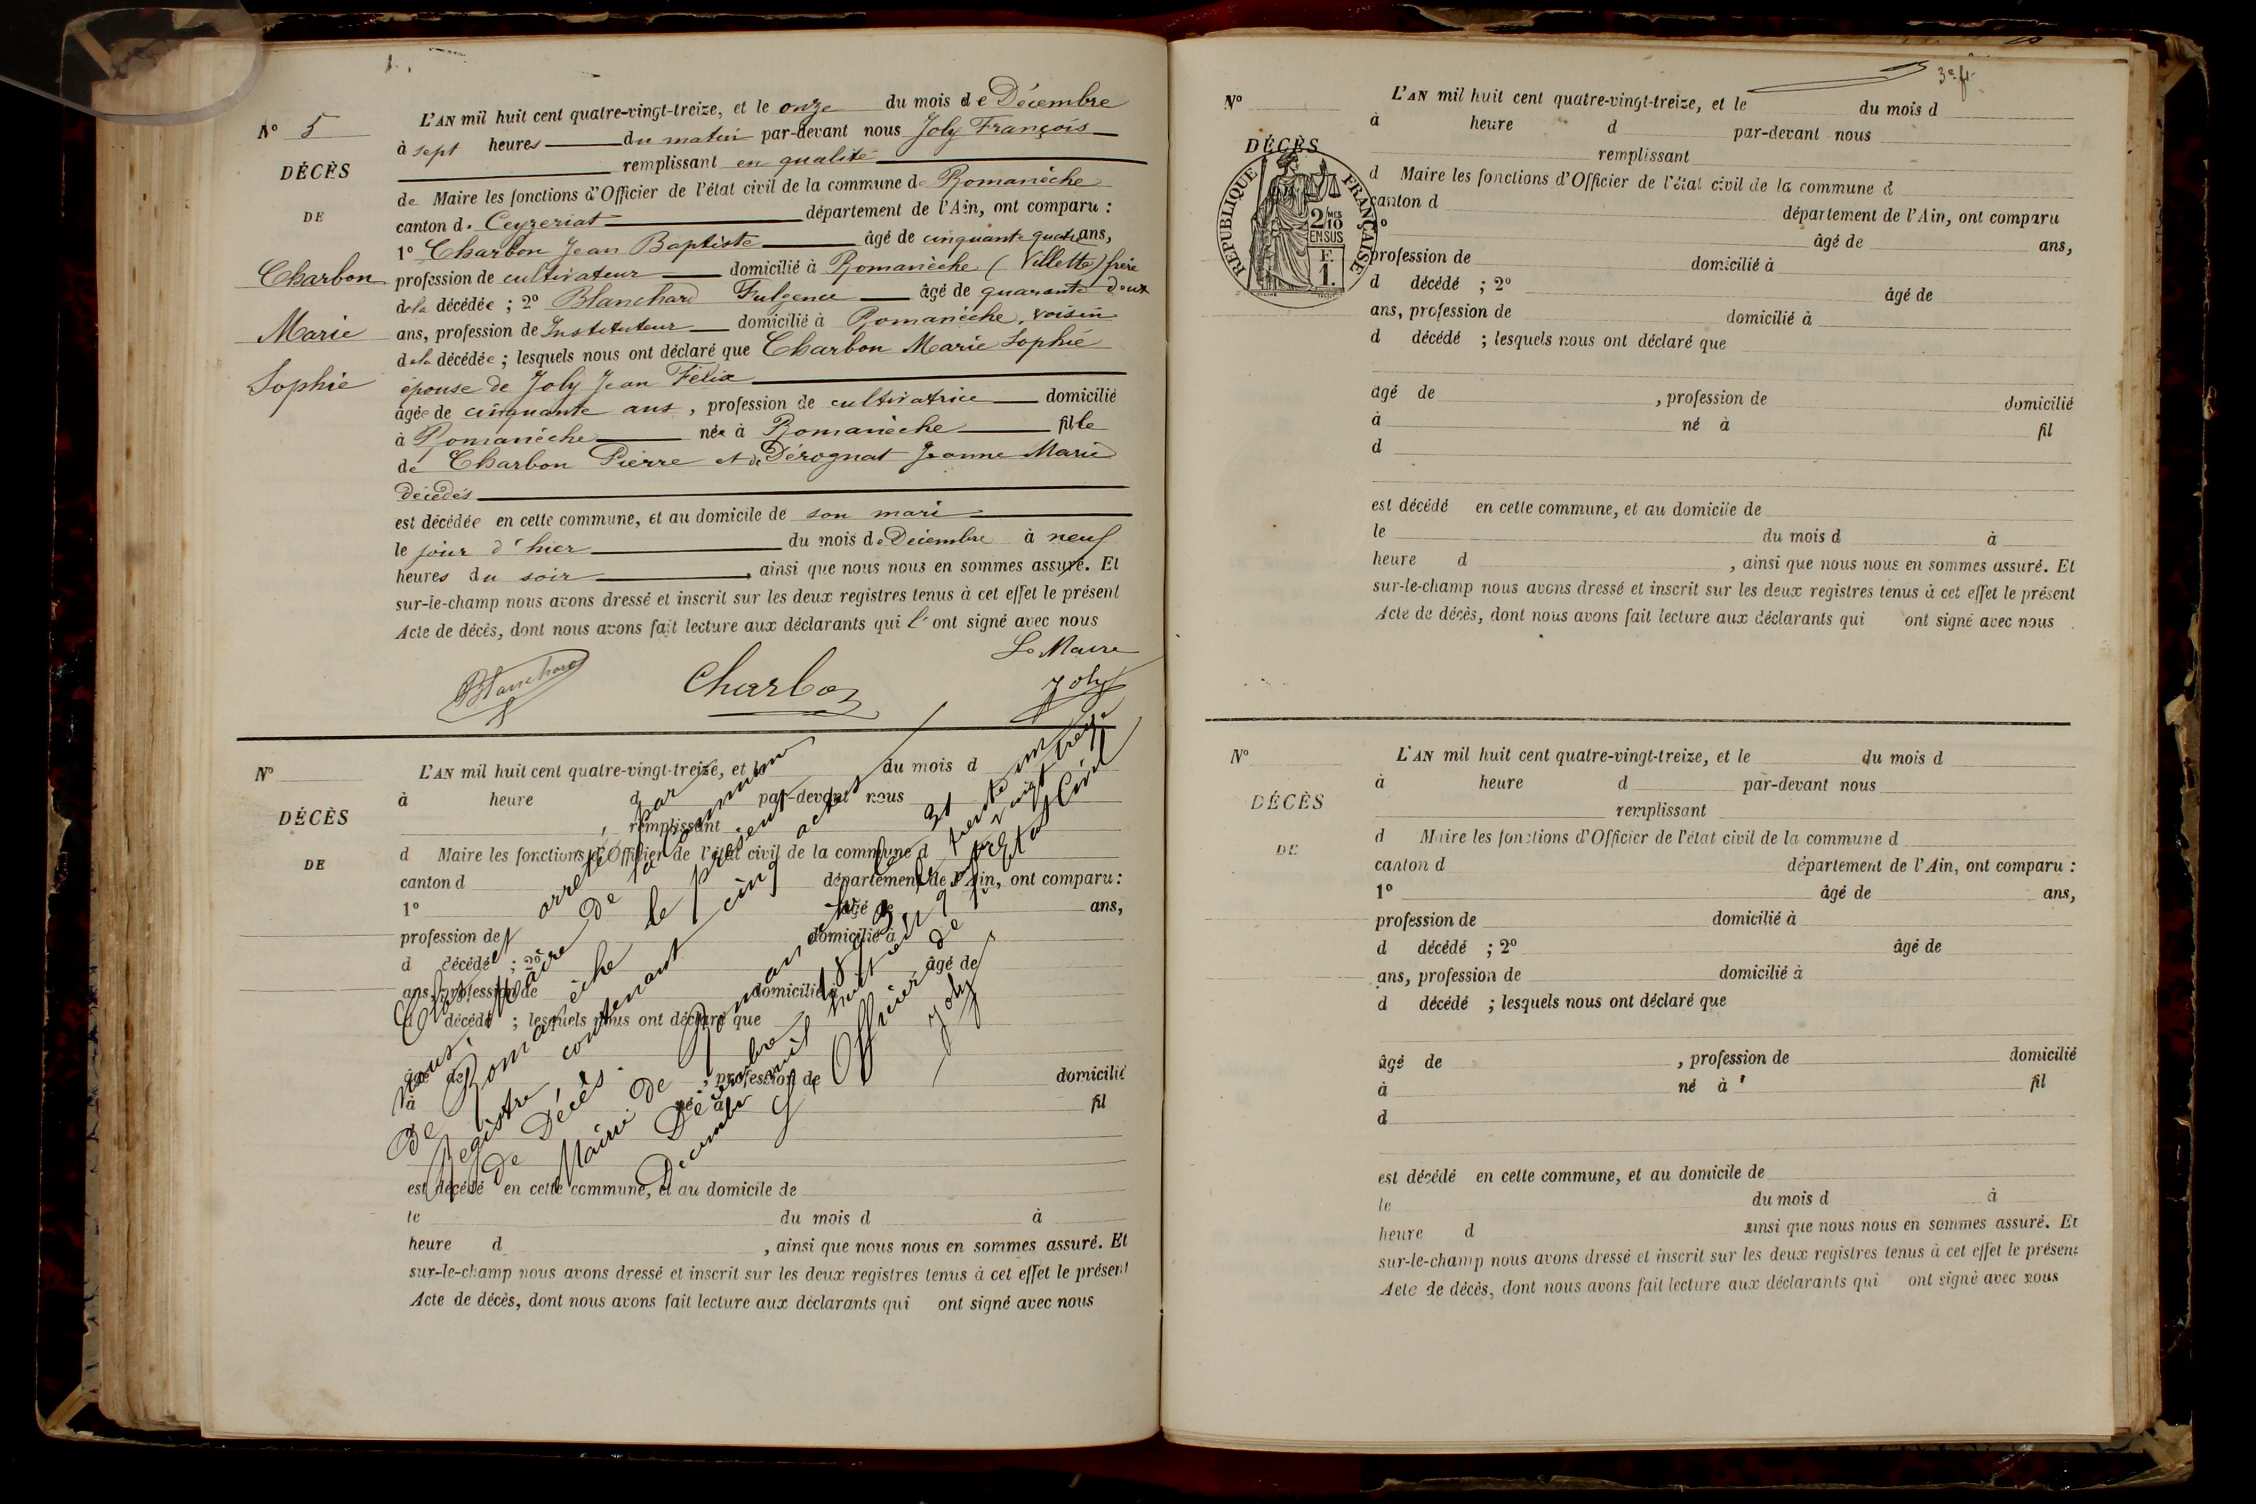 N° 5
DÉCÈS
DE
Charbon
Marie
Sophie
L'AN mil huit cent quatre-vingt-treize, et le onze du mois de Décembre
à sept heures du matin par-devant nous Joly François
remplissant en qualité
de Maire les fonctions d'Officier de l'état civil de la commune de Romanèche
canton de Ceyzeriat département de l'Ain, ont comparu :
1° Charbon Jean Baptiste âgé de cinquante quatre ans,
profession de cultivateur domicilié à Romanèche (Villette) frère
de la décédée ; 2° Blanchard Fulgence âgé de quarante deux
ans, profession de Instituteur domicilié à Romanèche, voisin
de la décédée ; lesquels nous ont déclaré que Charbon Marie Sophie
épouse de Joly Jean Félix
âgée de cinquante ans, profession de cultivatrice domicilié
à Romanèche née à Romanèche fille
de Charbon Pierre et de Dérognat Jeanne Marie
décédés
est décédée en cette commune, et au domicile de son mari
le jour d'hier du mois de Décembre à neuf
heures du soir, ainsi que nous nous en sommes assuré. Et
sur-le-champ nous avons dressé et inscrit sur les deux registres tenus à cet effet le présent
Acte de décès, dont nous avons fait lecture aux déclarants qui l'ont signé avec nous
Le Maire
Blanchard Charbon Joly
N°
DÉCÈS
DE
L'AN mil huit cent quatre-vingt-treize, et le du mois d
à heure d par-devant nous
remplissant
d Maire les fonctions d'Officier de l'état civil de la commune d
canton d département de l'Ain, ont comparu :
1° âgé de ans,
profession de domicilié à
d décédé ; 2° âgé de
ans, profession de domicilié à
d décédé ; lesquels nous ont déclaré que
âgé de , profession de domicilié
à né à fil
d
est décédé en cette commune, et au domicile de
le du mois d à
heure d , ainsi que nous nous en sommes assuré. Et
sur-le-champ nous avons dressé et inscrit sur les deux registres tenus à cet effet le présent
Acte de décès, dont nous avons fait lecture aux déclarants qui ont signé avec nous
Clos et arreté par
nous, Maire de la commune
de Romanèche le présent
Registre contenant cinq actes
de Décès.
Mairie de Romanèche le 31
Décembre 1893 le trente un
Décembre mil huit cent quatre vingt treize
L'Officier de l'Etat Civil
Joly
3e ft
N°
DÉCÈS
RÉPUBLIQUE FRANÇAISE
2/10 MES
EN SUS
F.
1.
L'AN mil huit cent quatre-vingt-treize, et le du mois d
à heure d par-devant nous
remplissant
d Maire les fonctions d'Officier de l'état civil de la commune d
canton d département de l'Ain, ont comparu
° âgé de ans,
profession de domicilié à
d décédé ; 2° âgé de
ans, profession de domicilié à
d décédé ; lesquels nous ont déclaré que
âgé de , profession de domicilié
à né à fil
d
est décédé en cette commune, et au domicile de
le du mois d à
heure d , ainsi que nous nous en sommes assuré. Et
sur-le-champ nous avons dressé et inscrit sur les deux registres tenus à cet effet le présent
Acte de décès, dont nous avons fait lecture aux déclarants qui ont signé avec nous
N°
DÉCÈS
DE
L'AN mil huit cent quatre-vingt-treize, et le du mois d
à heure d par-devant nous
remplissant
d Maire les fonctions d'Officier de l'état civil de la commune d
canton d département de l'Ain, ont comparu :
1° âgé de ans,
profession de domicilié à
d décédé ; 2° âgé de
ans, profession de domicilié à
d décédé ; lesquels nous ont déclaré que
âgé de , profession de domicilié
à né à fil
d
est décédé en cette commune, et au domicile de
le du mois d à
heure d ainsi que nous nous en sommes assuré. Et
sur-le-champ nous avons dressé et inscrit sur les deux registres tenus à cet effet le présent
Acte de décès, dont nous avons fait lecture aux déclarants qui ont signé avec nous